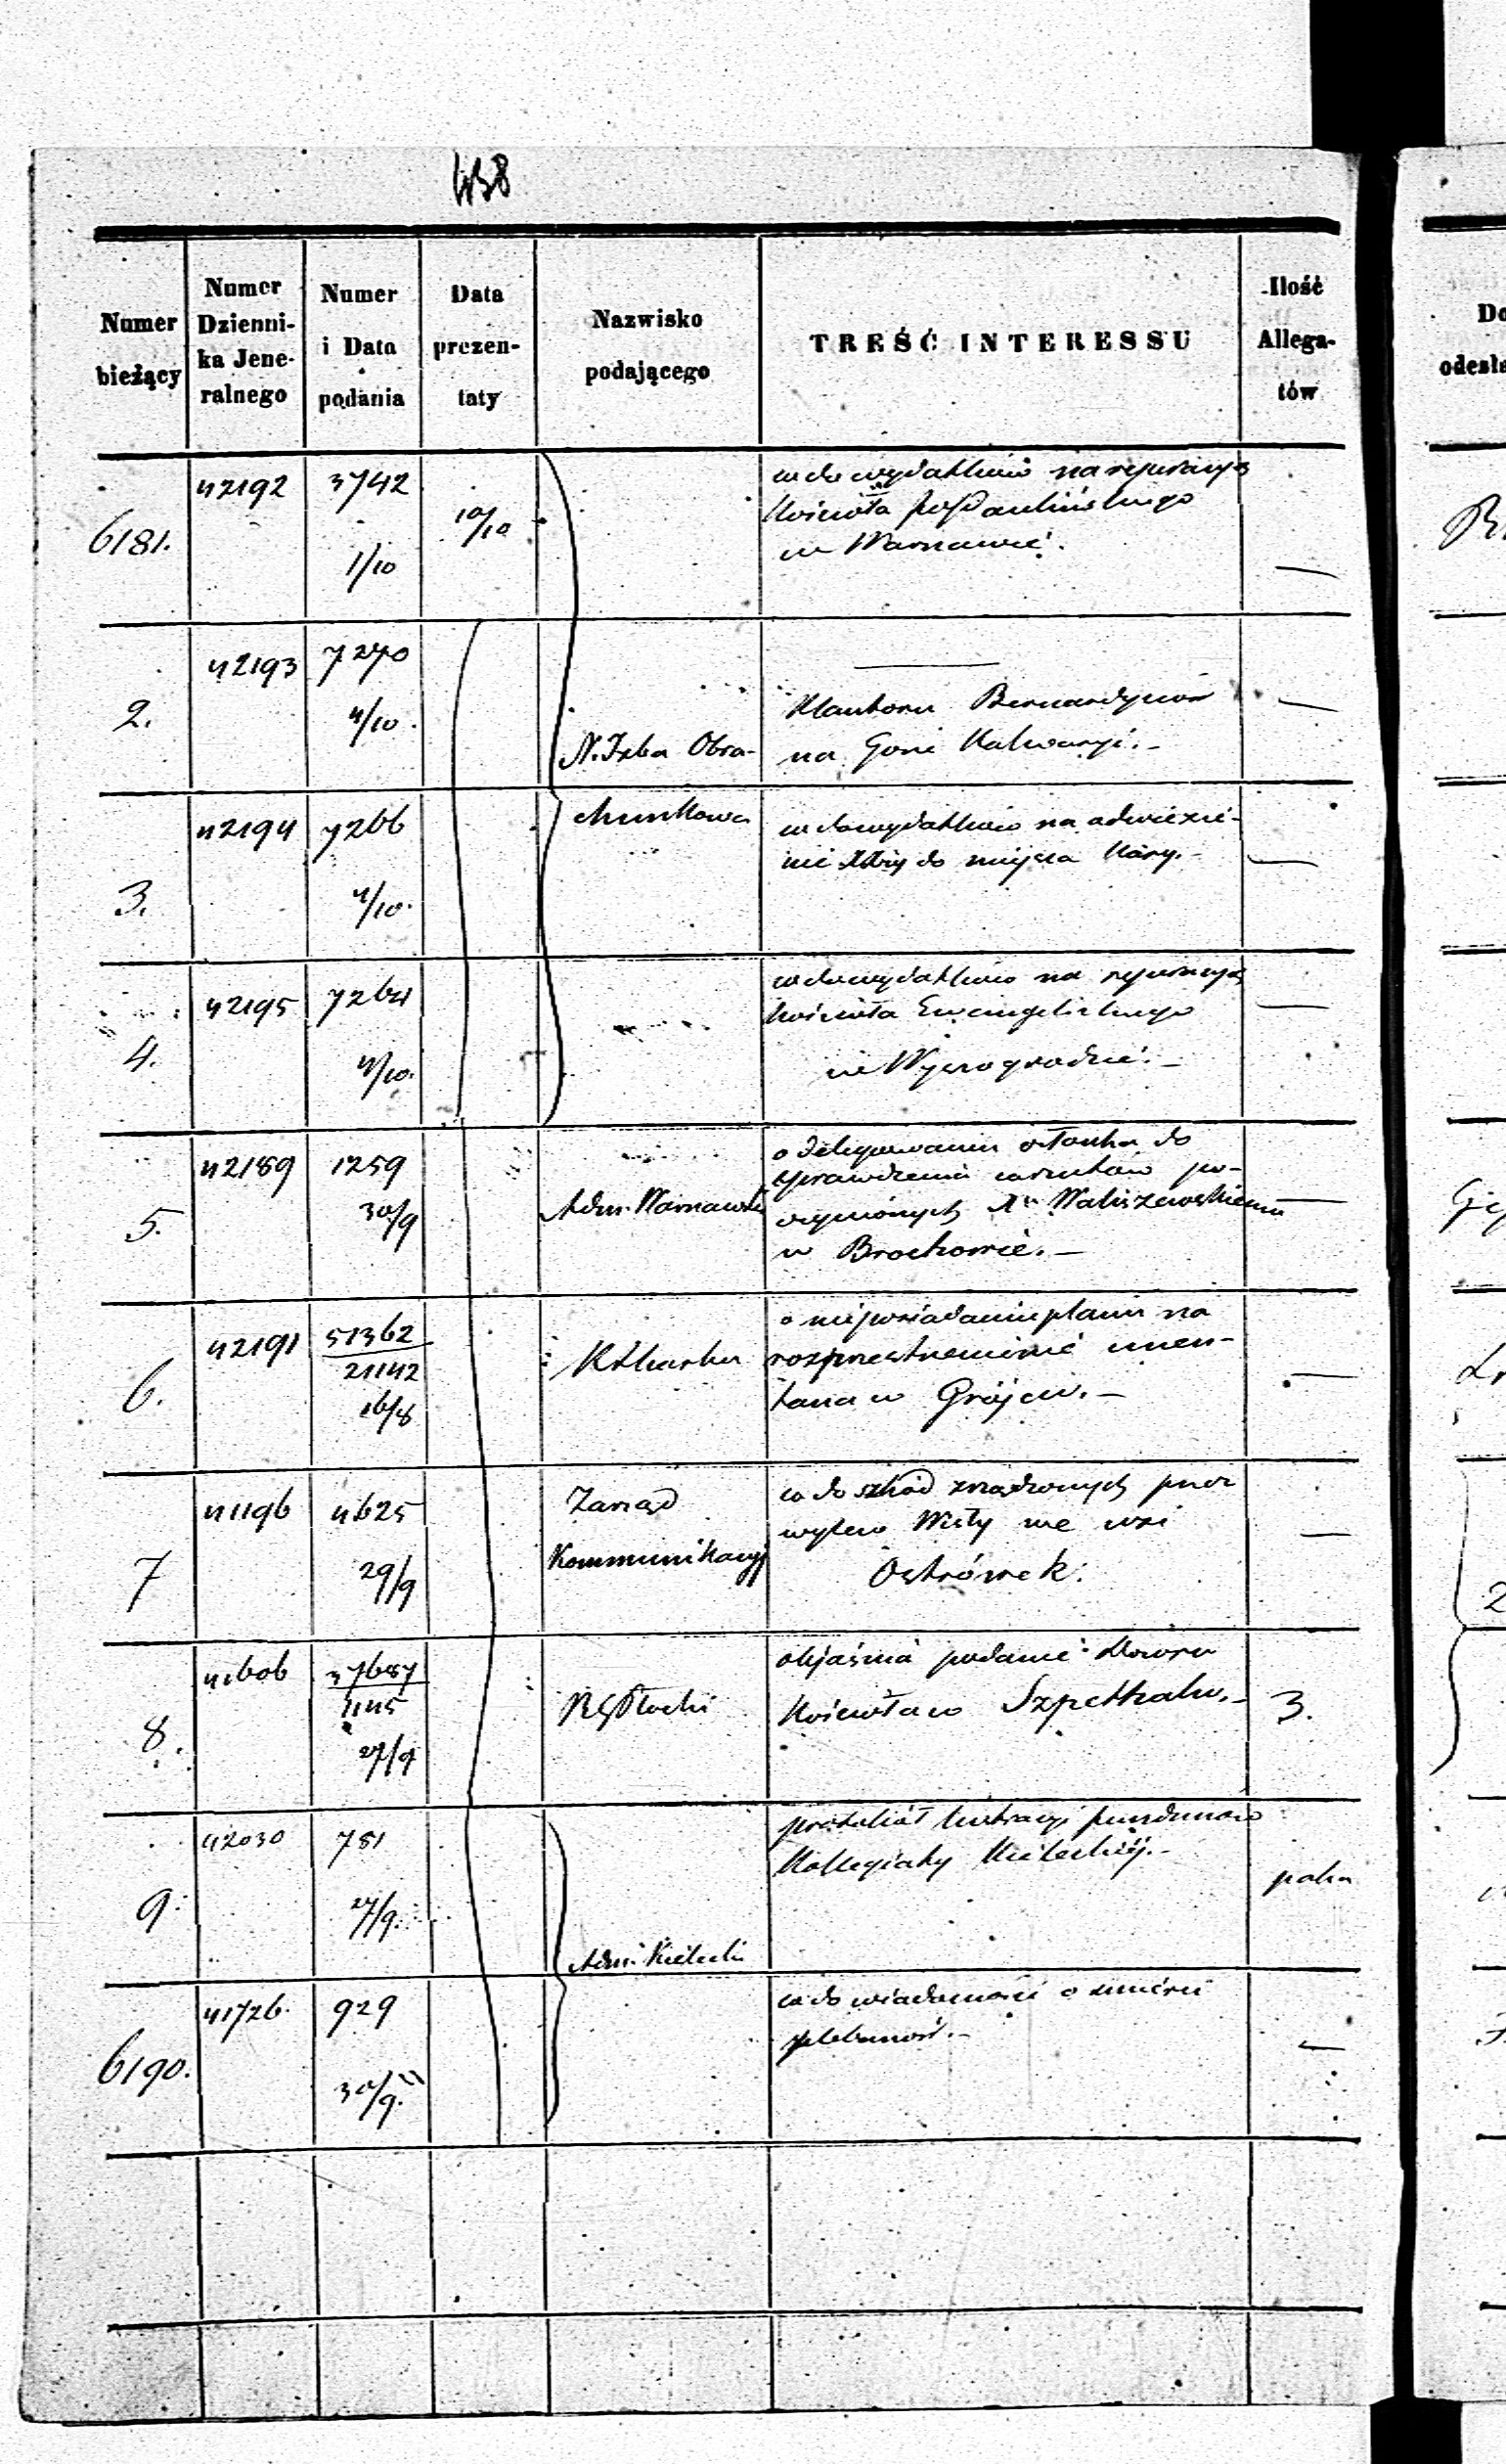 438
Numer bieżący
Numer Dziennika Jeneralnego
Numer i Data podania
Data prezentaty
Nazwisko podającego
TREŚĆ INTERESSU
Ilość Allegatów
Do
odesła
6181. 42192 3742 1/10 10/10
co do wydatków na reparacyą
Kościoła poPaulińskiego
w Warszawie. —
2. 42193 7270 4/10. N. Izba Obra-
Klasztoru Bernardynów —
na Górze Kalwaryi.–
3. 42194 7266 4/10. chunkowa
co do wydatków na odwiezie-
nie do miejsca Kary.– —
4. 42195 7264 4/10.
co do wydatków na reparacyą
Kościoła Ewangelickiego —
w Wyszogrodzie.–
5. 42189 1259 30/9 Adm. Warszawski
o delegowaniu członka do
sprawdzenia zarzutów po-
czynionych Xu Waliszewskiemu —
w Brochowie.–
6. 42191 51362/21142 16/8
o nieposiadaniu planu na
rozprzestrzenienie cmen-
tarza w Grójcu.– —
7 41196 4625 29/9 Zarząd
Kommunikacyj
co do szkód zrządzonych przez
wylew Wisły we wsi —
Ostrówek.
8. 41606 37687/1145 27/9 RG Płocki
objaśnia podanie Dozoru
Kościoła w Szpetalu.– 3.
9. 42030 781 27/9. Adm. Kielecki
protokół lustracyi funduszów
Kollegiaty Kieleckiéj.– paka
6190. 41726. 929 30/9.
co do wiadomości o śmierci
plebanów.– —